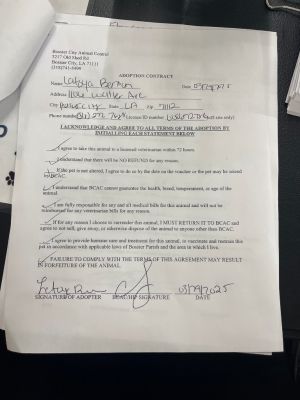 Bossier City Animal Control
3217 Old Shed Rd
Bossier City, LA 71111
(318)741-8499
ADOPTION CONTRACT
Name Date
Address
City State LA Zip 71112
Phone number License ID number (staff use only)
I ACKNOWLEDGE AND AGREE TO ALL TERMS OF THE ADOPTION BY
INITIALLING EACH STATEMENT BELOW
I agree to take this animal to a licensed veterinarian within 72 hours.
I understand that there will be NO REFUND for any reason.
If the pet is not altered, I agree to do so by the date on the voucher or the pet may be seized
by BCAC.
I understand that BCAC cannot guarantee the health, breed, temperament, or age of the
animal.
I am fully responsible for any and all medical bills for this animal and will not be
reimbursed for any veterinary bills for any reason.
If for any reason I choose to surrender this animal, I MUST RETURN IT TO BCAC and
agree to not sell, give away, or otherwise dispose of the animal to anyone other than BCAC.
I agree to provide humane care and treatment for this animal, to vaccinate and restrain this
pet in accordance with applicable laws of Bossier Parish and the area in which I live.
FAILURE TO COMPLY WITH THE TERMS OF THIS AGREEMENT MAY RESULT
IN FORFEITURE OF THE ANIMAL.
03/29/2025
SIGNATURE OF ADOPTER BCAC/HIP SIGNATURE DATE